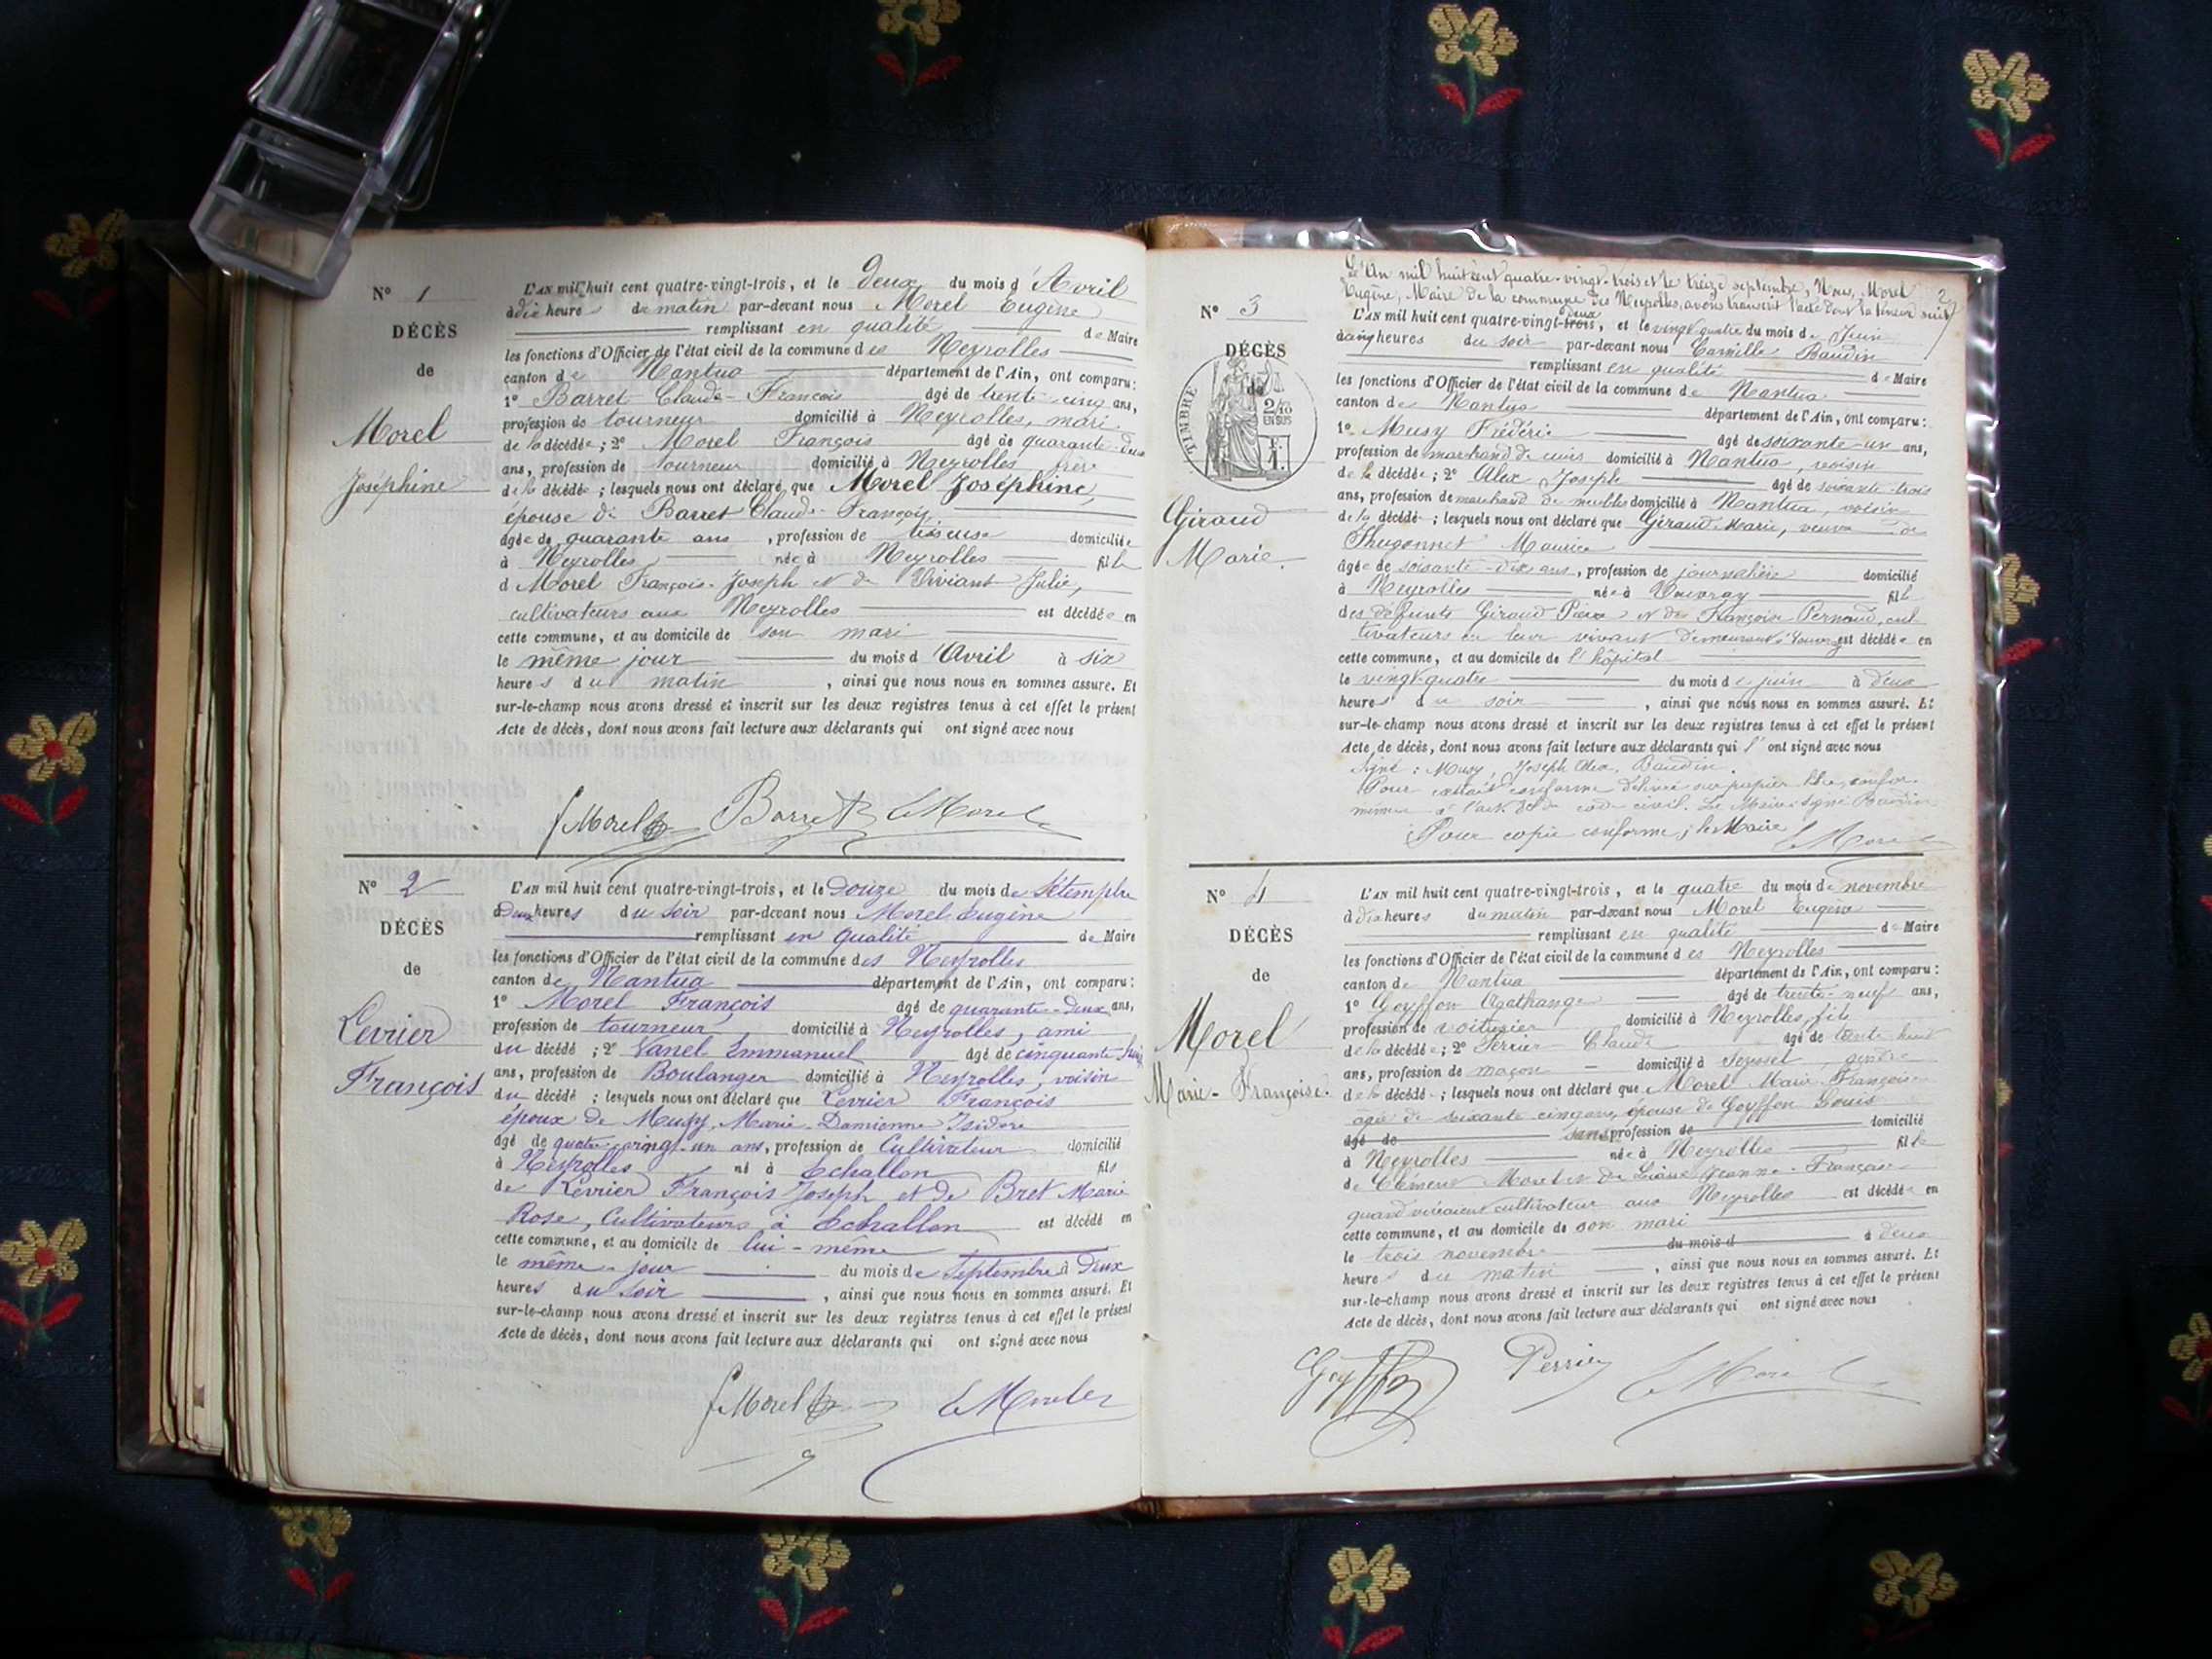 N° 1
DÉCÈS
de
Morel
Joséphine
L'AN mil huit cent quatre-vingt-trois, et le Deux du mois d'Avril
à dix heures du matin par-devant nous Morel Eugène
remplissant en qualité de Maire
les fonctions d'Officier de l'état civil de la commune des Neyrolles
canton de Nantua département de l'Ain, ont comparu:
1° Barret Claude-François âgé de trente-cinq ans,
profession de tourneur domicilié à Neyrolles, mari
de la décédée; 2° Morel François âgé de quarante-deux
ans, profession de tourneur domicilié à Neyrolles frère
de la décédée; lesquels nous ont déclaré que Morel Joséphine,
épouse de Barret Claude-François
âgée de quarante ans, profession de tisseuse domiciliée
à Neyrolles née à Neyrolles fille
d Morel François-Joseph et de Viviant Julie,
cultivateurs aux Neyrolles est décédée en
cette commune, et au domicile de son mari
le même jour du mois d'Avril à six
heures du matin, ainsi que nous nous en sommes assuré. Et
sur-le-champ nous avons dressé et inscrit sur les deux registres tenus à cet effet le présent
Acte de décès, dont nous avons fait lecture aux déclarants qui ont signé avec nous
f Morel Barret E Morel
N° 2
DÉCÈS
de
Levrier
François
L'AN mil huit cent quatre-vingt-trois, et le Douze du mois de Setempbre
à Deux heures du Soir par-devant nous Morel Eugène
remplissant en qualité de Maire
les fonctions d'Officier de l'état civil de la commune des Neyrolles
canton de Nantua département de l'Ain, ont comparu:
1° Morel François âgé de quarante-Deux ans,
profession de tourneur domicilié à Neyrolles, ami
du décédé; 2° Vanel Emmanuel âgé de cinquante
ans, profession de Boulanger domicilié à Neyrolles, voisin
du décédé; lesquels nous ont déclaré que Levrier François
époux de Musy, Marie-Damienne Isidore
âgé de quatre-vingt-un ans, profession de Cultivateur domicilié
à Neyrolles né à Echallon fils
de Levrier François Joseph et de Bret Marie
Rose, Cultivateurs à Echallon est décédé en
cette commune, et au domicile de lui-même
le même jour du mois de Septembre à Deux
heures du Soir, ainsi que nous nous en sommes assuré. Et
sur-le-champ nous avons dressé et inscrit sur les deux registres tenus à cet effet le présent
Acte de décès, dont nous avons fait lecture aux déclarants qui ont signé avec nous
f Morel E Morel
L'An mil huit cent quatre-vingt-trois et le treize septembre, Nous, Morel
Eugène, Maire de la commune des Neyrolles, avons transcrit l'acte dont la teneur suit
2
N° 3
DÉCÈS
de
TIMBRE
2/10
EN SUS
1 F.
Giraud
Marie.
deux
L'AN mil huit cent quatre-vingt-trois, et le vingt quatre du mois de Juin
à cinq heures du soir par-devant nous Camille Baudin
remplissant en qualité de Maire
les fonctions d'Officier de l'état civil de la commune de Nantua
canton de Nantua département de l'Ain, ont comparu:
1° Musy Frédéric âgé de soixante-un ans,
profession de marchand de cuirs domicilié à Nantua, voisin
de la décédée; 2° Alex Joseph âgé de soixante-trois
ans, profession de marchand de meubles domicilié à Nantua, voisin
de la décédée; lesquels nous ont déclaré que Giraud Marie, veuve de
Thugonnet Maurice
âgée de soixante-dix ans, profession de journalière domicilié
à Neyrolles née à Vouvray fille
des défunts Giraud Pierre et de Françoise Pernoud, cul
tivateurs en leur vivant demeurant à Vouvray est décédée en
cette commune, et au domicile de l'hôpital
le vingt-quatre du mois de juin à deux
heures du soir, ainsi que nous nous en sommes assuré. Et
sur-le-champ nous avons dressé et inscrit sur les deux registres tenus à cet effet le présent
Acte de décès, dont nous avons fait lecture aux déclarants qui l'ont signé avec nous
Signé: Musy, Joseph Alex, Baudin.
Pour extrait conforme délivré sur papier libre, confor-
mément à l'art. du code civil. Le Maire signé Baudin
Pour copie conforme; le Maire E Morel
N° 4
DÉCÈS
de
Morel
Marie-Françoise.
L'AN mil huit cent quatre-vingt-trois, et le quatre du mois de novembre
à dix heures du matin par-devant nous Morel Eugène
remplissant en qualité de Maire
les fonctions d'Officier de l'état civil de la commune des Neyrolles
canton de Nantua département de l'Ain, ont comparu:
1° Goyffon Agathange âgé de trente-neuf ans,
profession de voiturier domicilié à Neyrolles, fils
de la décédée; 2° Perrier Claude âgé de trente huit
ans, profession de maçon domicilié à Seyssel, gendre
de la décédée; lesquels nous ont déclaré que Morel Marie-Françoise
agée de soixante cinq ans, épouse de Goyffon Louis
âgé de sans profession de domicilié
à Neyrolles née à Neyrolles fille
de Clément Morel et de Jeanne-Françoise
quand vivaient cultivateur aux Neyrolles est décédée en
cette commune, et au domicile de son mari
le trois novembre du mois d à deux
heures du matin, ainsi que nous nous en sommes assuré. Et
sur-le-champ nous avons dressé et inscrit sur les deux registres tenus à cet effet le présent
Acte de décès, dont nous avons fait lecture aux déclarants qui ont signé avec nous
Goyffon Perrier E Morel